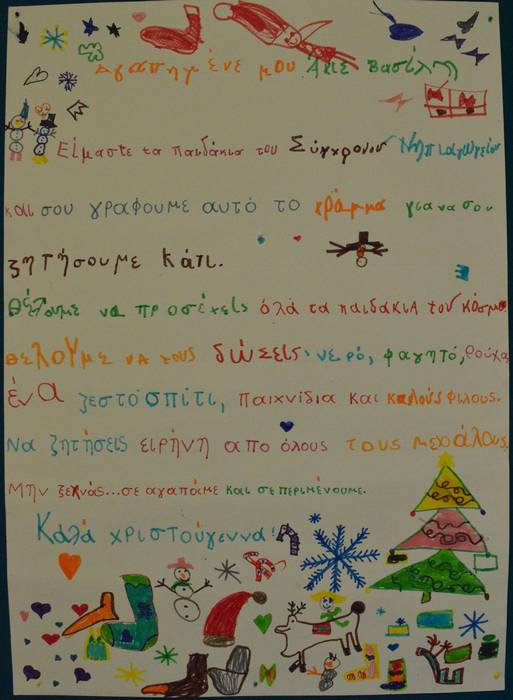 Αγαπημένε μου Άγιε Βασίλη
Είμαστε τα παιδάκια του Σύγχρονου Νηπιαγωγείου
και σου γράφουμε αυτό το γράμμα για να σου
ζητήσουμε κάτι.
Θέλουμε να προσέχεις όλα τα παιδάκια του κόσμου
θέλουμε να τους δώσεις: νερό, φαγητό, ρούχα,
ένα ζεστό σπίτι, παιχνίδια και καλούς φίλους.
Να ζητήσεις ειρήνη απο όλους τους μεγάλους.
Μην ξεχνάς...σε αγαπάμε και σε περιμένουμε.
Καλά χριστούγεννα!